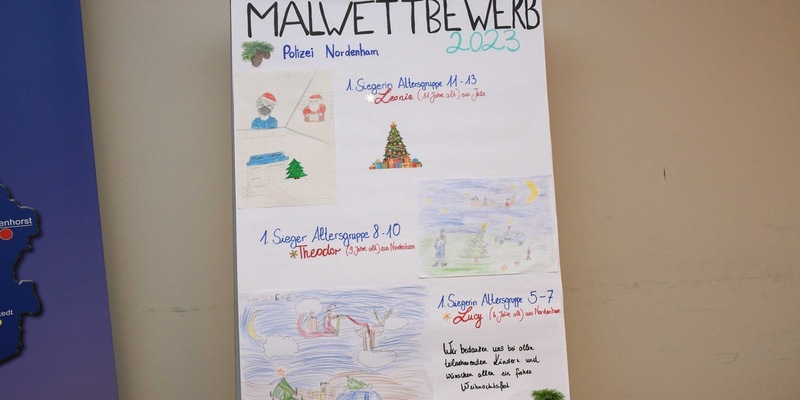 MALWETTBEWERB
2023
Polizei Nordenham
1. Siegerin Altersgruppe 11-13
Leonie (11 Jahre alt) aus Jade
1. Sieger Altersgruppe 8-10
Theodor (9 Jahre alt) aus Nordenham
1. Siegerin Altersgruppe 5-7
Lucy (6 Jahre alt) aus Nordenham
Wir bedanken uns bei allen
teilnehmenden Kindern und
wünschen allen ein frohes
Weihnachtsfest
enhorst
stedt